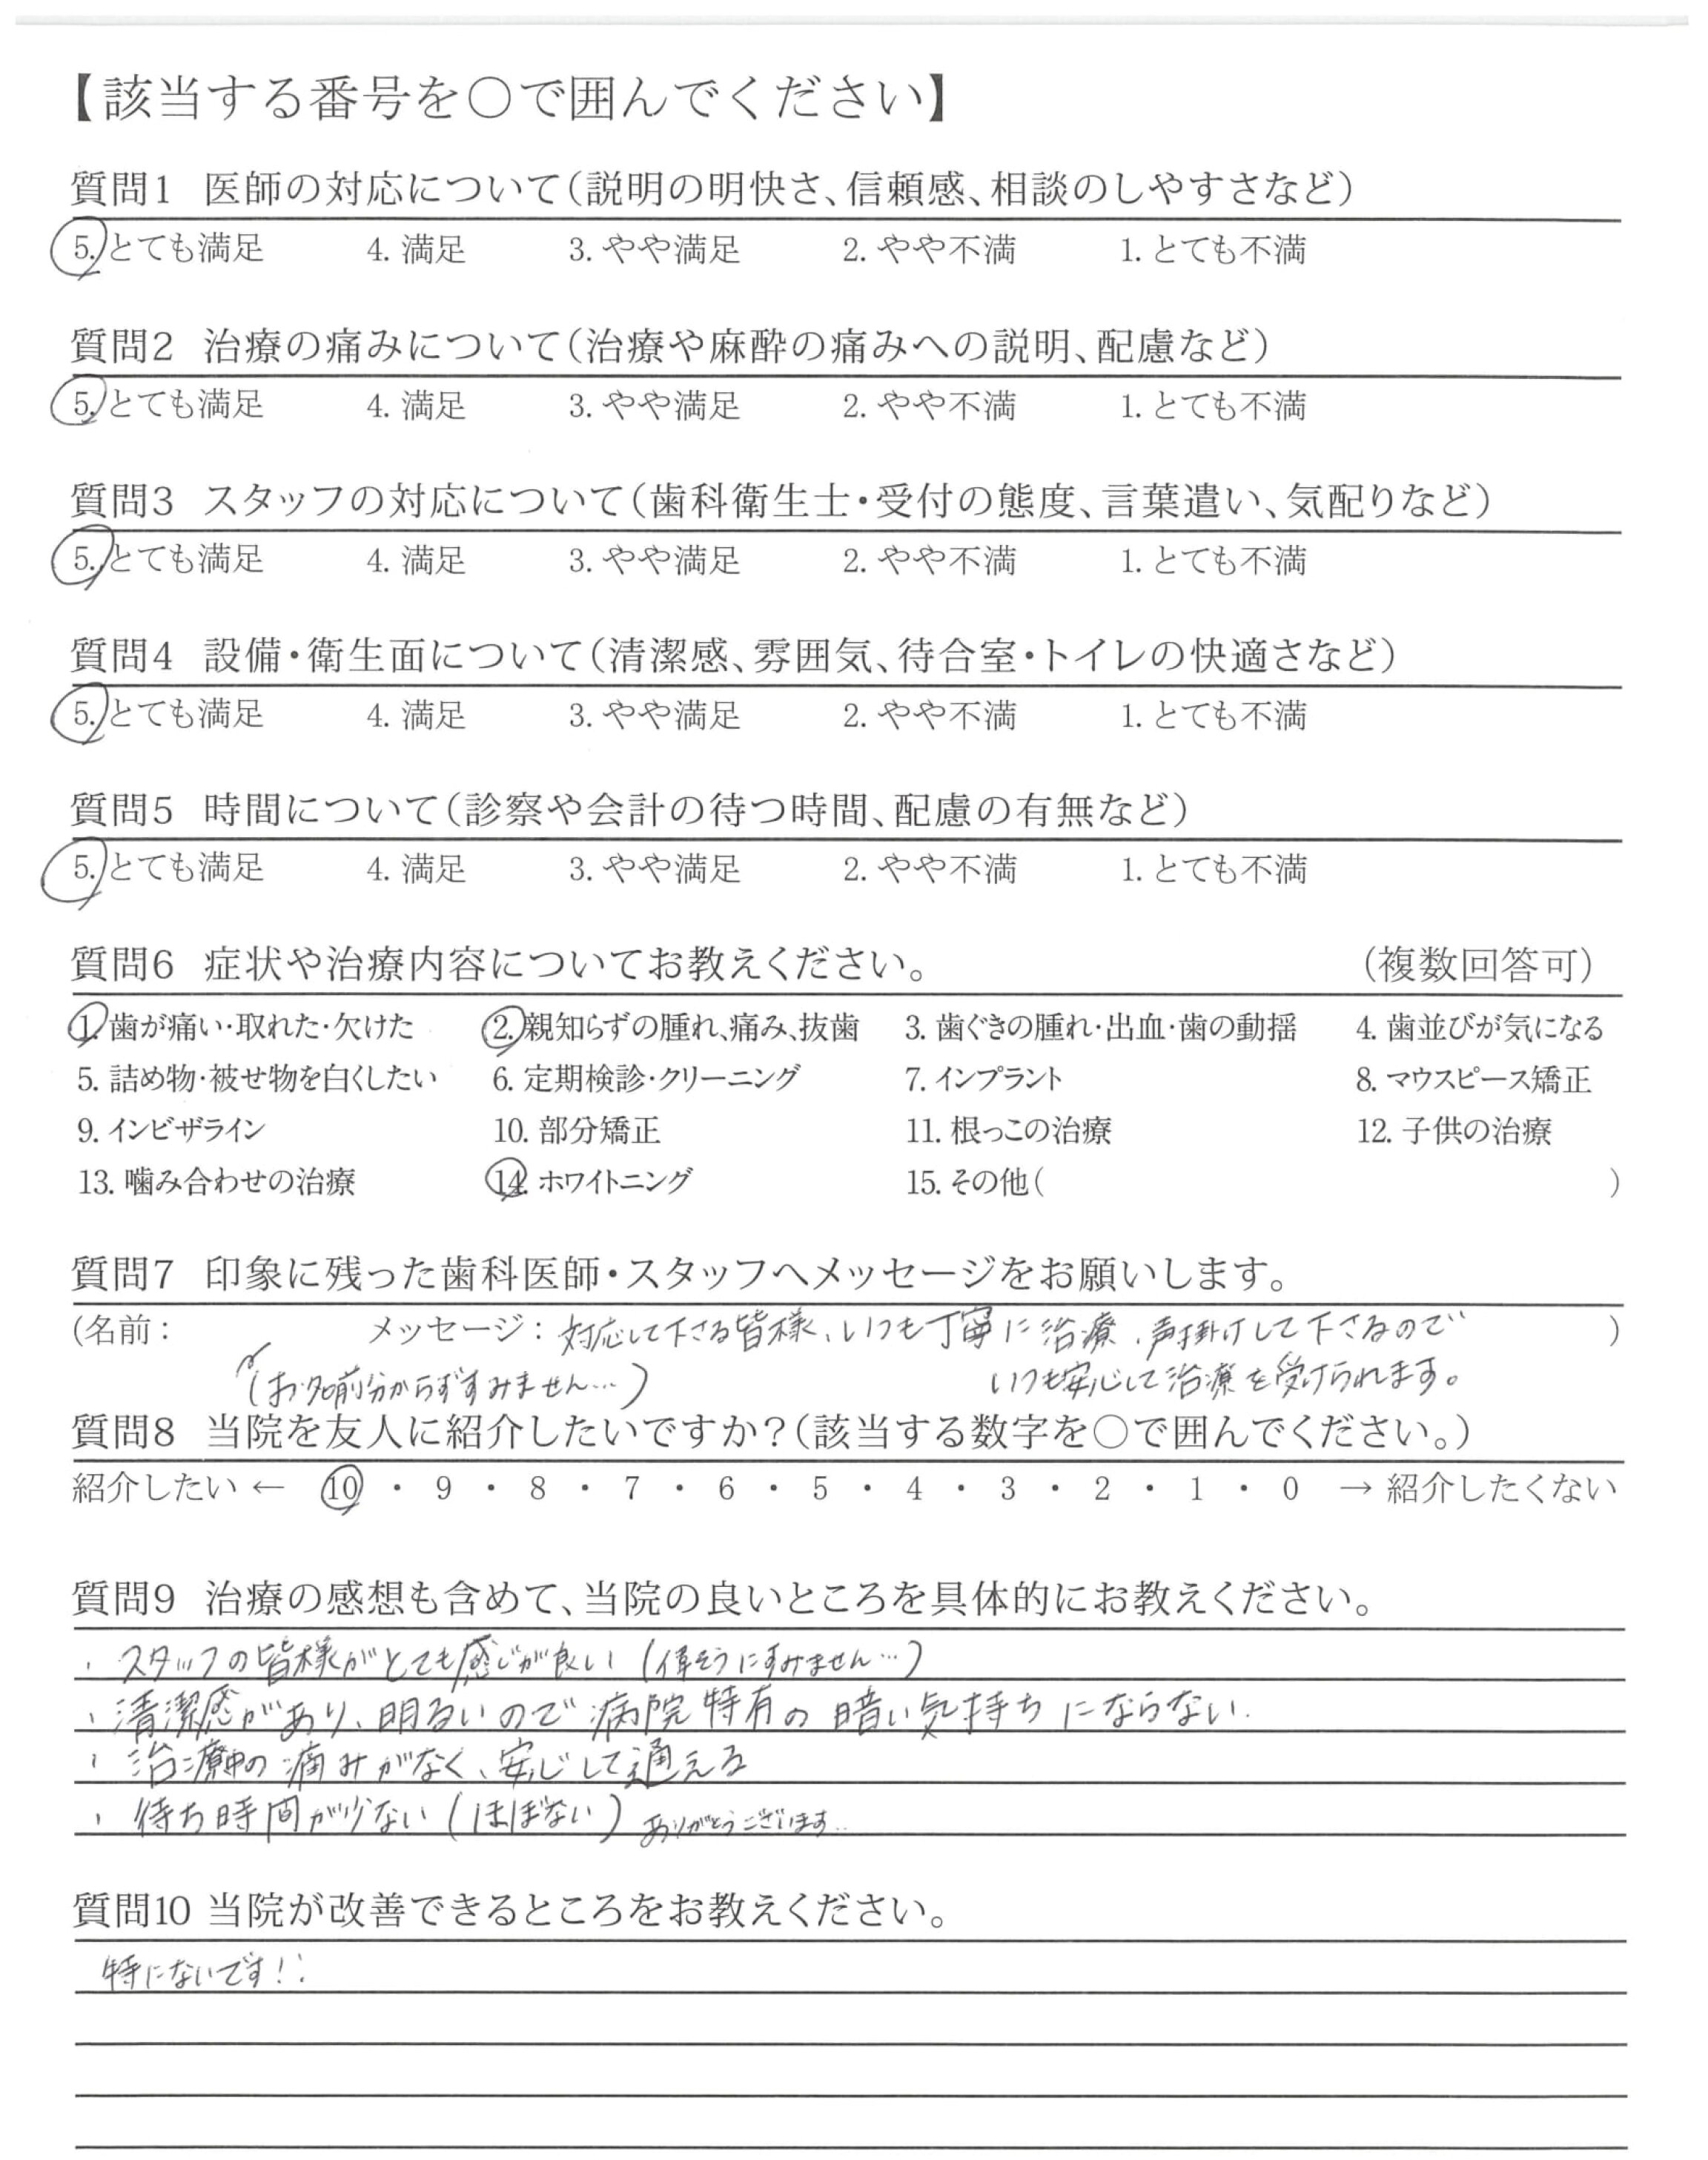 【該当する番号を○で囲んでください】
質問1 医師の対応について(説明の明快さ、信頼感、相談のしやすさなど)
5. とても満足 4. 満足 3. やや満足 2. やや不満 1. とても不満
質問2 治療の痛みについて(治療や麻酔の痛みへの説明、配慮など)
5. とても満足 4. 満足 3. やや満足 2. やや不満 1. とても不満
質問3 スタッフの対応について(歯科衛生士・受付の態度、言葉遣い、気配りなど)
5. とても満足 4. 満足 3. やや満足 2. やや不満 1. とても不満
質問4 設備・衛生面について(清潔感、雰囲気、待合室・トイレの快適さなど)
5. とても満足 4. 満足 3. やや満足 2. やや不満 1. とても不満
質問5 時間について(診察や会計の待つ時間、配慮の有無など)
5. とても満足 4. 満足 3. やや満足 2. やや不満 1. とても不満
質問6 症状や治療内容についてお教えください。 (複数回答可)
1. 歯が痛い・取れた・欠けた 2. 親知らずの腫れ、痛み、抜歯 3. 歯ぐきの腫れ・出血・歯の動揺 4. 歯並びが気になる
5. 詰め物・被せ物を白くしたい 6. 定期検診・クリーニング 7. インプラント 8. マウスピース矯正
9. インビザライン 10. 部分矯正 11. 根っこの治療 12. 子供の治療
13. 噛み合わせの治療 14. ホワイトニング 15. その他( )
質問7 印象に残った歯科医師・スタッフへメッセージをお願いします。
(名前: メッセージ: 対応して下さる皆様、いつも丁寧に治療、声掛けして下さるので )
(お名前分からずすみません…) いつも安心して治療を受けられます。
質問8 当院を友人に紹介したいですか?(該当する数字を○で囲んでください。)
紹介したい ← 10 ・ 9 ・ 8 ・ 7 ・ 6 ・ 5 ・ 4 ・ 3 ・ 2 ・ 1 ・ 0 → 紹介したくない
質問9 治療の感想も含めて、当院の良いところを具体的にお教えください。
・スタッフの皆様がとても感じが良い (偉そうにすみません…)
・清潔感があり、明るいので病院特有の暗い気持ちにならない.
・治療中の痛みがなく、安心して通える
・待ち時間が少ない (ほぼない) ありがとうございます..
質問10 当院が改善できるところをお教えください。
特にないです!!